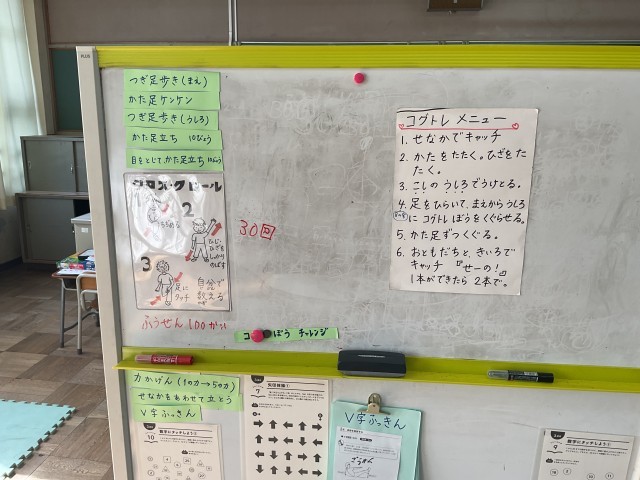 つぎ足歩き(まえ)
かた足ケンケン
つぎ足歩き(うしろ)
かた足立ち 10びょう
目をとじて、かた足立ち 10びょう
クロス・クロール
2
ひじ・ひざをしっかりのばす
3
足にタッチ
自分で数える
30回
ふうせん100かい
ぼう チャレンジ
コグトレ メニュー
1. せなかでキャッチ
2. かたをたたく。ひざをた
たく。
3. こしの うしろでうけとる。
4. 足をひらいて、まえからうしろ
に コグトレ ぼうをくぐらせる。
5. かた足ずつくぐる。
6. おともだちと、きいろで
キャッチ 『せーの!』
1本ができたら 2本で。
力かげん(10の力→50の力)
せなかをあわせて立とう
V字ふっきん
10
数字にタッチしよう①
7
V字ふっきん
9
数字にタッチしよう①
PLUS